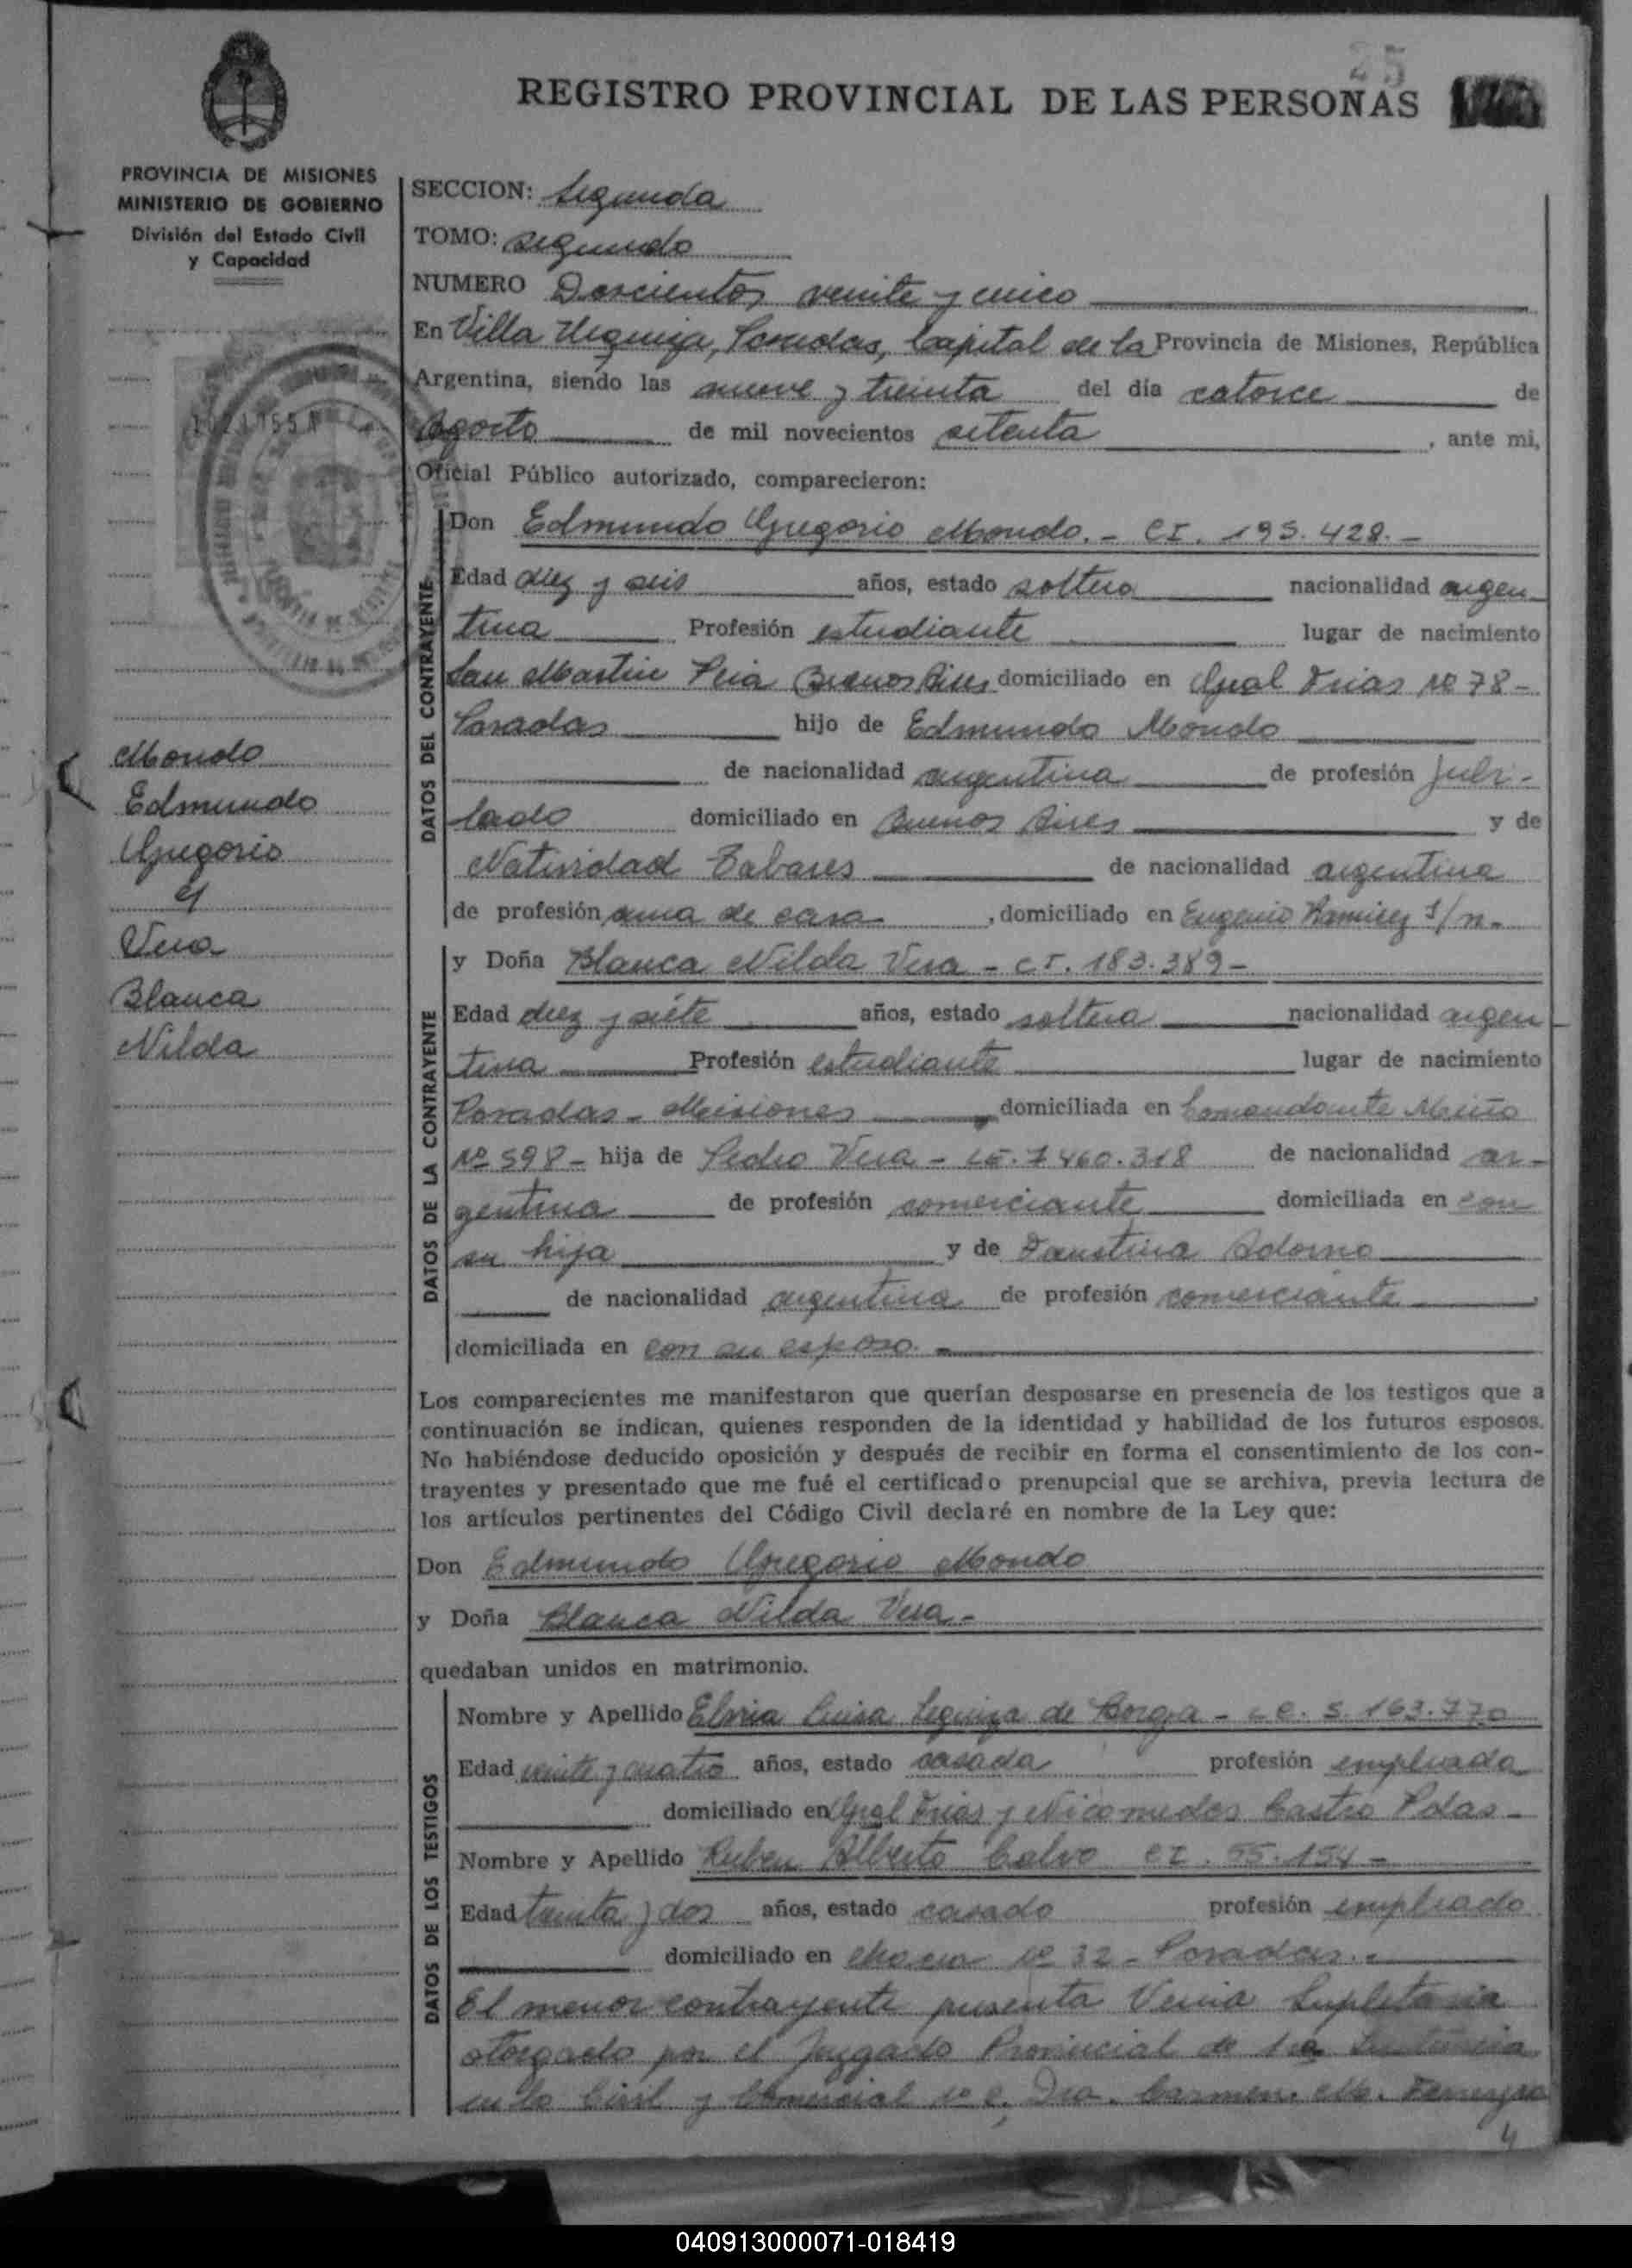 25
REGISTRO PROVINCIAL DE LAS PERSONAS
PROVINCIA DE MISIONES
MINISTERIO DE GOBIERNO
División del Estado Civil
y Capacidad
SECCION: Segunda
TOMO: segundo
NUMERO Doscientos veinte y cinco
En Villa Urquiza, Posadas, Capital de la Provincia de Misiones, República
Argentina, siendo las nueve y treinta del día catorce de
Agosto de mil novecientos setenta, ante mi,
Oficial Público autorizado, comparecieron:
DATOS DEL CONTRAYENTE
Don Edmundo Gregorio Mondo. - CI. 195.428. -
Edad diez y seis años, estado soltero nacionalidad argen
tina Profesión estudiante lugar de nacimiento
San Martin Pcia Buenos Aires domiciliado en Gral Frias Nº 78 -
Posadas hijo de Edmundo Mondo
de nacionalidad argentina de profesión jubi-
lado domiciliado en Buenos Aires y de
Natividad Tabares de nacionalidad argentina
de profesión ama de casa, domiciliado en Eugenio Ramirez s/n -
Mondo
Edmundo
Gregorio
y
Vera
Blanca
Nilda
DATOS DE LA CONTRAYENTE
y Doña Blanca Nilda Vera - CI. 183.389 -
Edad diez y siete años, estado soltera nacionalidad argen
tina Profesión estudiante lugar de nacimiento
Posadas - Misiones domiciliada en Comandante Miño
Nº 598 - hija de Pedro Vera - LE. 7460.318 de nacionalidad ar-
gentina de profesión comerciante domiciliada en con
su hija y de Faustina Adorno
de nacionalidad argentina de profesión comerciante,
domiciliada en con su esposo. -
Los comparecientes me manifestaron que querían desposarse en presencia de los testigos que a
continuación se indican, quienes responden de la identidad y habilidad de los futuros esposos.
No habiéndose deducido oposición y después de recibir en forma el consentimiento de los con-
trayentes y presentado que me fué el certificado prenupcial que se archiva, previa lectura de
los artículos pertinentes del Código Civil declaré en nombre de la Ley que:
Don Edmundo Gregorio Mondo
y Doña Blanca Nilda Vera -
quedaban unidos en matrimonio.
DATOS DE LOS TESTIGOS
Nombre y Apellido Elvia Luisa de Borga - LC. 5.163.770
Edad veinte y cuatro años, estado casada profesión empleada
domiciliado en Gral Frias y Nicomedes Castro Pdas -
Nombre y Apellido Ruben Alberto Calvo CI. 55.154 -
Edad treinta y dos años, estado casado profesión empleado
domiciliado en Nº 32 - Posadas. -
El menor contrayente presenta Venia Supletoria
otorgado por el Juzgado Provincial de 1ra Instancia
en lo Civil y Comercial Nº 2, Dra. Carmen M. Ferreyra
4
040913000071-018419